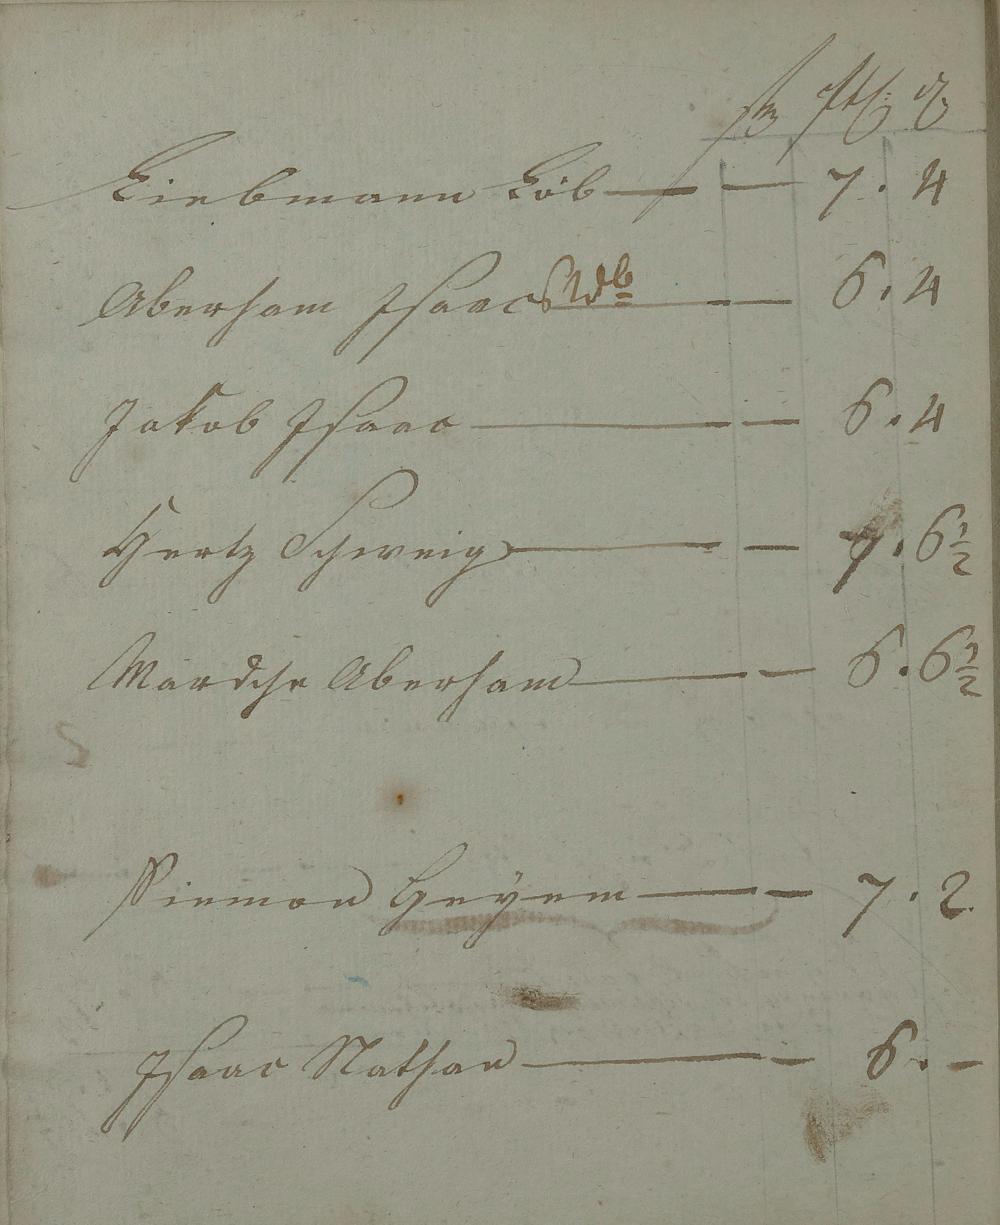 Liebmann Löb — — 7. 4
Aberham Isaac — — 6. 4
Jakob Isaac — — 6. 4
Hertz Schweig — — 7. 6 1/2
Mardche Aberham — — 6. 6 1/2
Siemon Heÿem — — 7. 2
Isaac Nathan — — 6. —